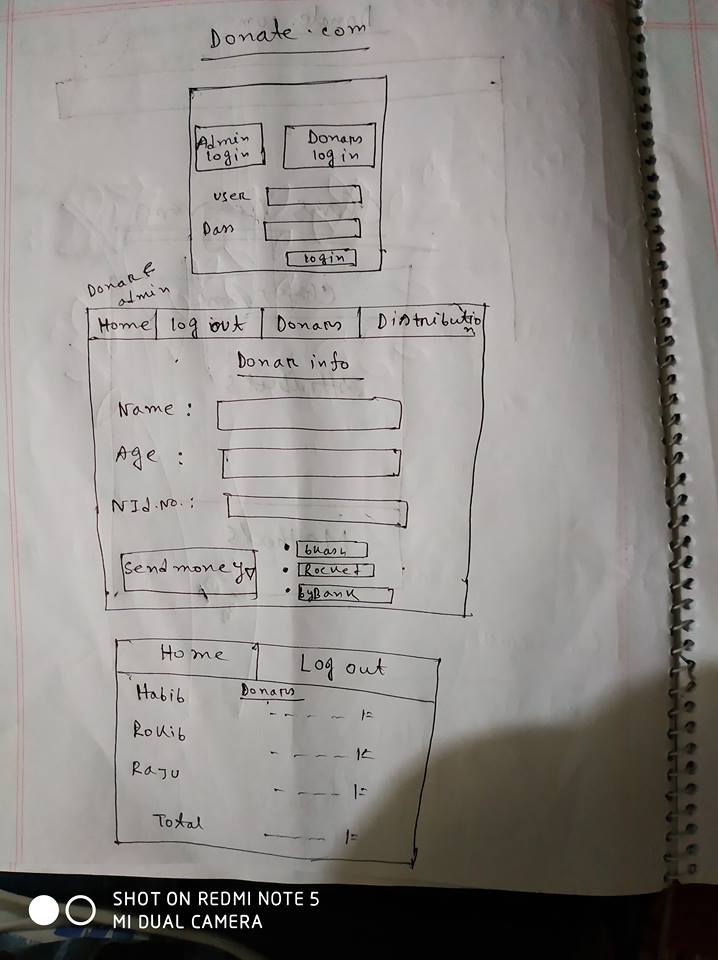 Donate.com
Admin login
Donars log in
user
Pass
login
Donar &
admin
Home log out Donars Distribution
Donar info
Name :
Age :
NId.No. :
Send money
bkash
Rocket
by Bank
Home Log out
Donars
Habib - - - - /=
Rokib - - - - /=
Raju - - - - /=
Total - - - - /=
SHOT ON REDMI NOTE 5
MI DUAL CAMERA